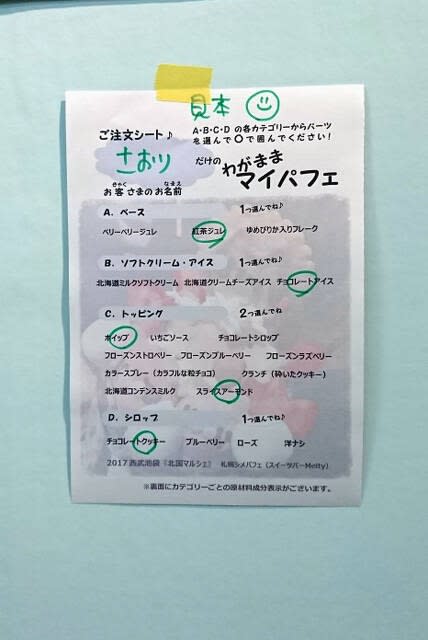 見本
ご注文シート♪
A・B・C・D の各カテゴリーからパーツを選んで○で囲んでください！
さおり
だけの わがままマイパフェ
お客さまのお名前
きゃく なまえ
A. ベース 1つ選んでね♪
ベリーベリージュレ 紅茶ジュレ ゆめぴりか入りフレーク
B. ソフトクリーム・アイス 1つ選んでね♪
北海道ミルクソフトクリーム 北海道クリームチーズアイス チョコレートアイス
C. トッピング 2つ選んでね
ホイップ いちごソース チョコレートシロップ
フローズンストロベリー フローズンブルーベリー フローズンラズベリー
カラースプレー（カラフルな粒チョコ） クランチ（砕いたクッキー）
北海道コンデンスミルク スライスアーモンド
D. シロップ 1つ選んでね♪
チョコレートクッキー ブルーベリー ローズ 洋ナシ
2017 西武池袋『北国マルシェ』 札幌シメパフェ（スイーツバーMelty）
※裏面にカテゴリーごとの原材料成分表示がございます。